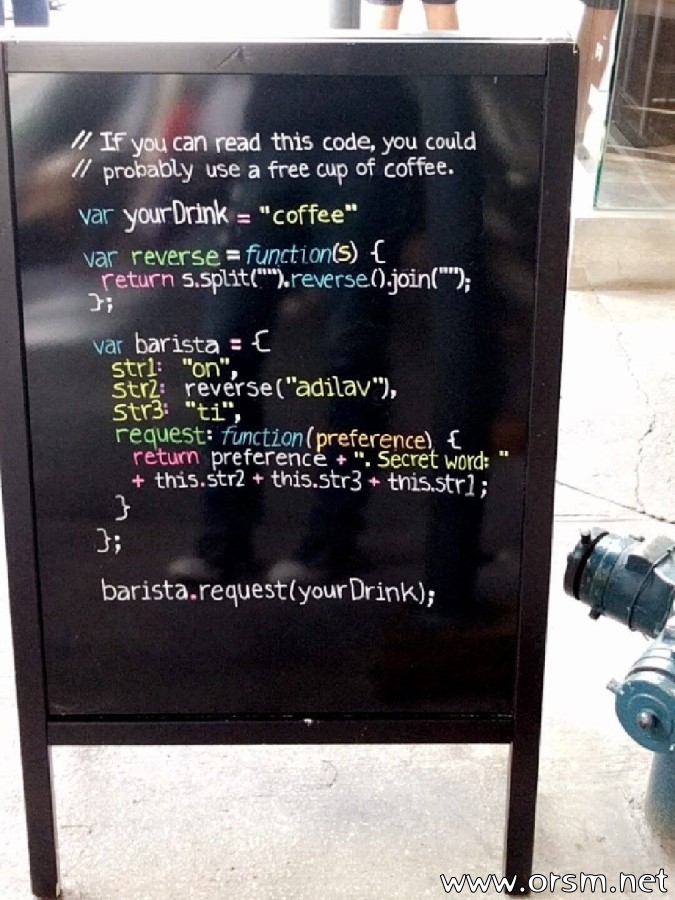 // If you can read this code, you could
// probably use a free cup of coffee.
var yourDrink = "coffee"
var reverse = function(s) {
return s.split("").reverse().join("");
};
var barista = {
str1: "on",
str2: reverse("adilav"),
str3: "ti",
request: function(preference) {
return preference + ". Secret word: "
+ this.str2 + this.str3 + this.str1;
}
};
barista.request(yourDrink);
www.orsm.net